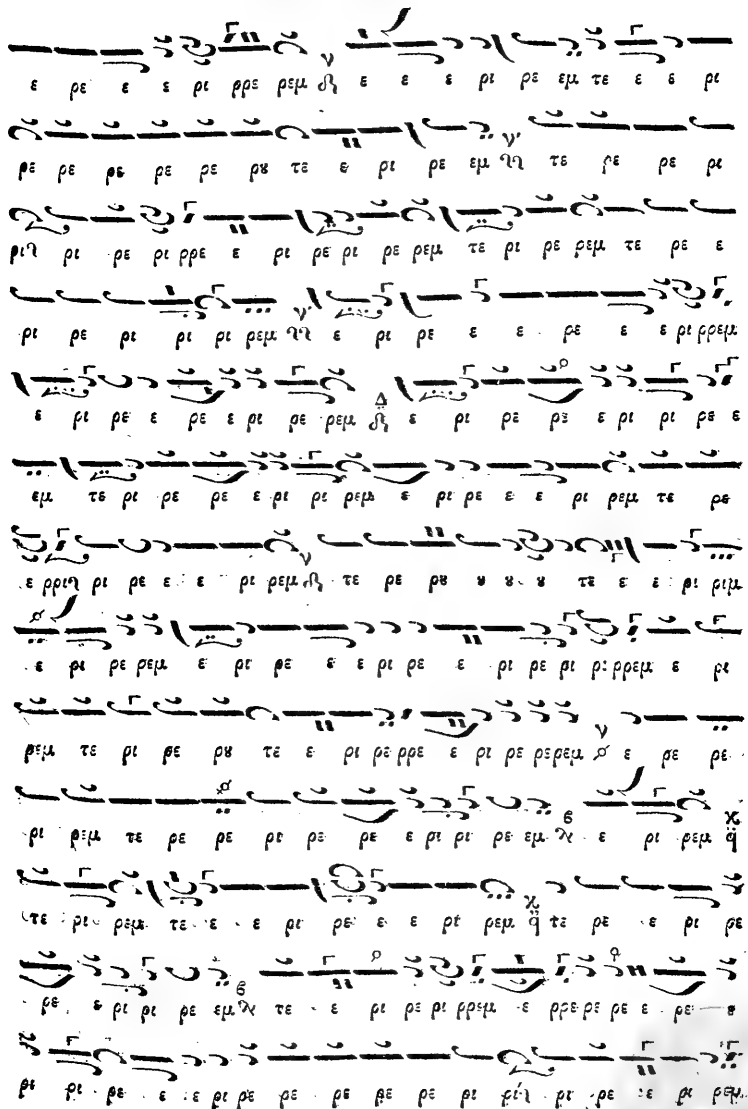 ε ρε ε ε ρι ρρε ρεμ ε ε ε ρι ρε εμ τε ε ε ρι
ρε ρε ρε ρε ρε ρȣ τε ε ρι ρε εμ τε ρε ρε ρι
ρι ρι ρε ρι ρρε ε ρι ρε ρι ρε ρεμ τε ρι ρε ρεμ τε ρε ε
ρι ρε ρι ρι ρι ρεμ ε ρι ρε ε ε ρε ε ε ρι ρρεμ
ε ρι ρε ε ρε ε ρι ρε ρεμ ε ρι ρε ρε ε ρι ρι ρε ε
εμ τε ρι ρε ρε ε ρι ρι ρεμ ε ρι ρε ε ε ρι ρεμ τε ρε
ε ρρι ρι ρε ε ε ρι ρεμ τε ρε ρȣ ȣ ȣ ȣ τε ε ε ρι ριμ
ε ρι ρε ρεμ ε ρι ρε ε ε ρι ρε ε ρι ρε ρι ρι ρρεμ ε ρι
ρεμ τε ρι ρε ρȣ τε ε ρι ρε ρρε ε ρι ρε ρε ρεμ ε ρε ρε
ρι ρεμ τε ρε ρε ρι ρε ρε ε ρι ρι ρε εμ ε ρι ρεμ
τε ρι ρεμ τε ε ε ρι ρε ε ε ρι ρεμ τε ρε ε ρι ρε
ρε ε ρι ρι ρε εμ τε ε ε ρι ρε ρι ρρεμ ε ρρε ρε ρε ε ρε
ρε ρι ρε ε ε ρι ρε ρε ρε ρε ρε ρι ρι ρι ρε ε ρι ρεμ